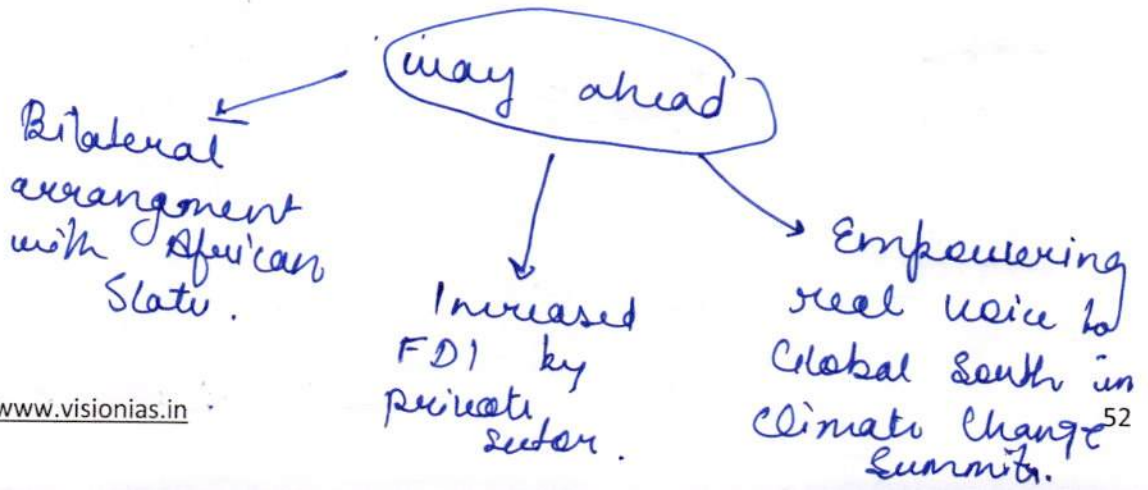 way ahead
Bilateral
arrangment
with African
State.
Increased
FDI by
private
sector.
Empowering
real voice to
Global South in
Climate Change
Summits.
www.visionias.in
52